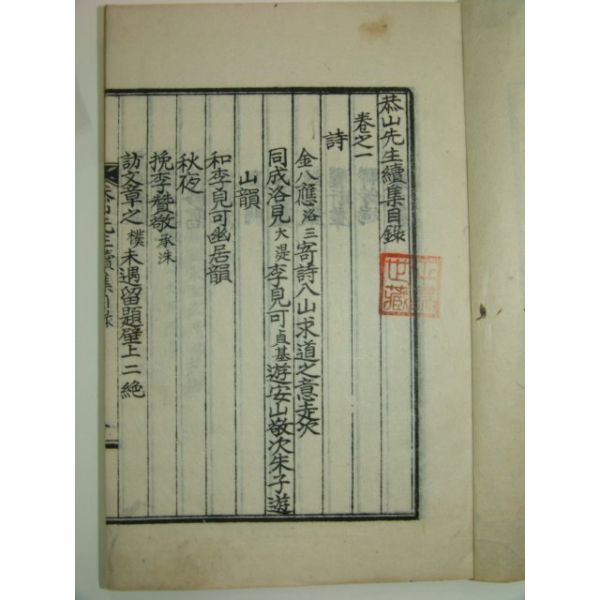 恭山先生續集目錄
卷之一
詩
金八應洛三寄詩八山求道之意走次
同成洛見大湜李見可貞基遊安山敬次朱子遊
山韻
和李見可幽居韻
秋夜
挽李賛敬承洙
訪文章之樸未遇留題壁上二絶
恭山先生續集目錄